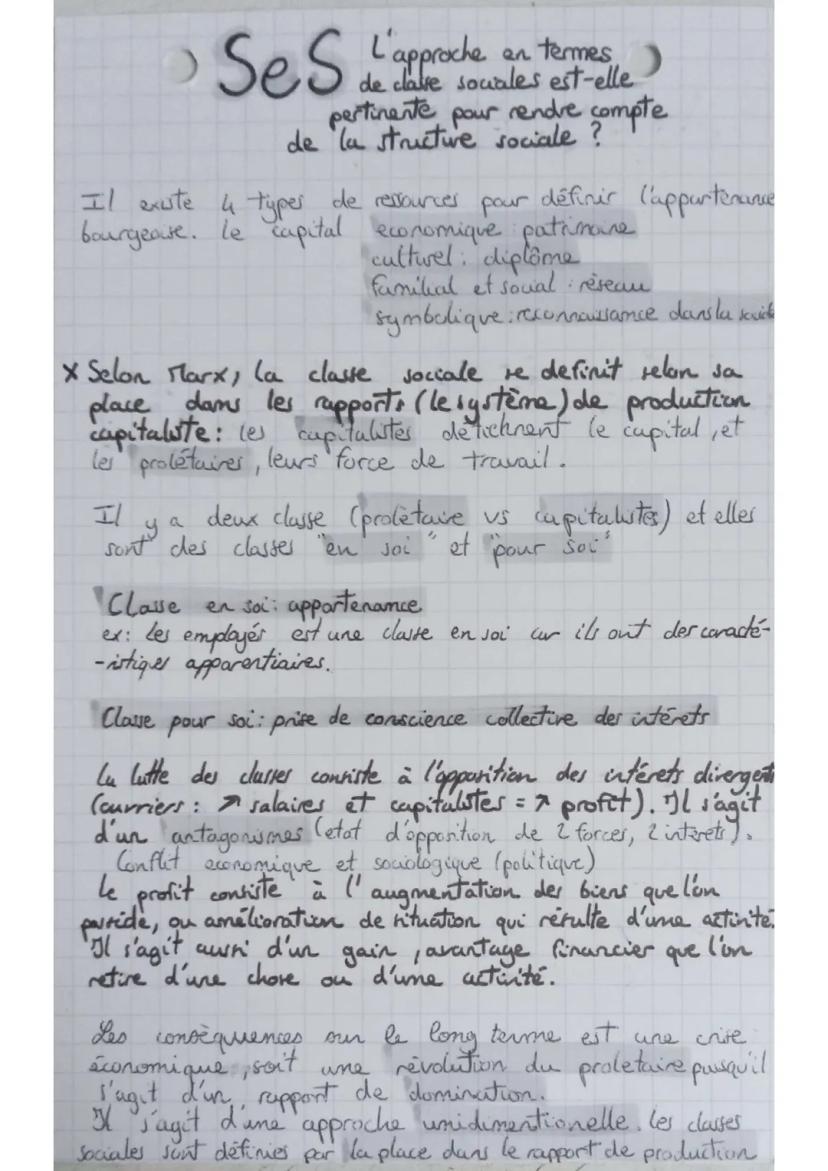 SeS L'approche en termes
de classe sociales est-elle
pertinente pour rendre compte
de la structure sociale ?
Il existe 4 types de ressources pour définir l'appartenance
bourgeoise. le capital économique : patrimoine
culturel : diplôme
familial et social : réseau
symbolique : reconnaissance dans la société
x Selon Marx, la classe sociale se definit selon sa
place dans les rapports (le système) de production
capitaliste : les capitalistes détiennent le capital, et
les prolétaires, leurs force de travail.
Il y a deux classe (prolétaire vs capitalistes) et elles
sont des classes "en soi" et "pour soi"
Classe en soi : appartenance
ex : les employés est une classe en soi car ils ont des caracté-
-istiques apparentiaires.
Classe pour soi : prise de conscience collective des intérêts
la lutte des classes consiste à l'opposition des intérêts divergent
(ouvriers : ↗ salaires et capitalistes = ↗ profit). Il s'agit
d'un antagonismes (etat d'opposition de 2 forces, 2 interets).
Conflit economique et sociologique (politique)
le profit consiste à l'augmentation des biens que l'on
possède, ou amélioration de situation qui résulte d'une activité.
Il s'agit aussi d'un gain, avantage financier que l'on
retire d'une chose ou d'une activité.
Les conséquences sur le long terme est une crise
économique, soit une révolution du proletaire puisqu'il
s'agit d'un rapport de domination.
Il s'agit d'une approche unidimentionelle. les classes
sociales sont définies par la place dans le rapport de production